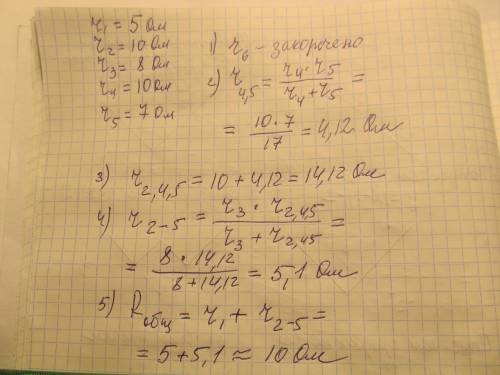 r₁ = 5 Ом
r₂ = 10 Ом
r₃ = 8 Ом
r₄ = 10 Ом
r₅ = 7 Ом
1) r₆ – закорочено
2) r₄,₅ = r₄ · r₅ / r₄ + r₅ =
= 10 · 7 / 17 = 4,12 Ом
3) r₂,₄,₅ = 10 + 4,12 = 14,12 Ом
4) r₂₋₅ = r₃ · r₂,₄₅ / r₃ + r₂,₄₅ =
= 8 · 14,12 / 8 + 14,12 = 5,1 Ом
5) Rобщ = r₁ + r₂₋₅ =
= 5 + 5,1 ≈ 10 Ом